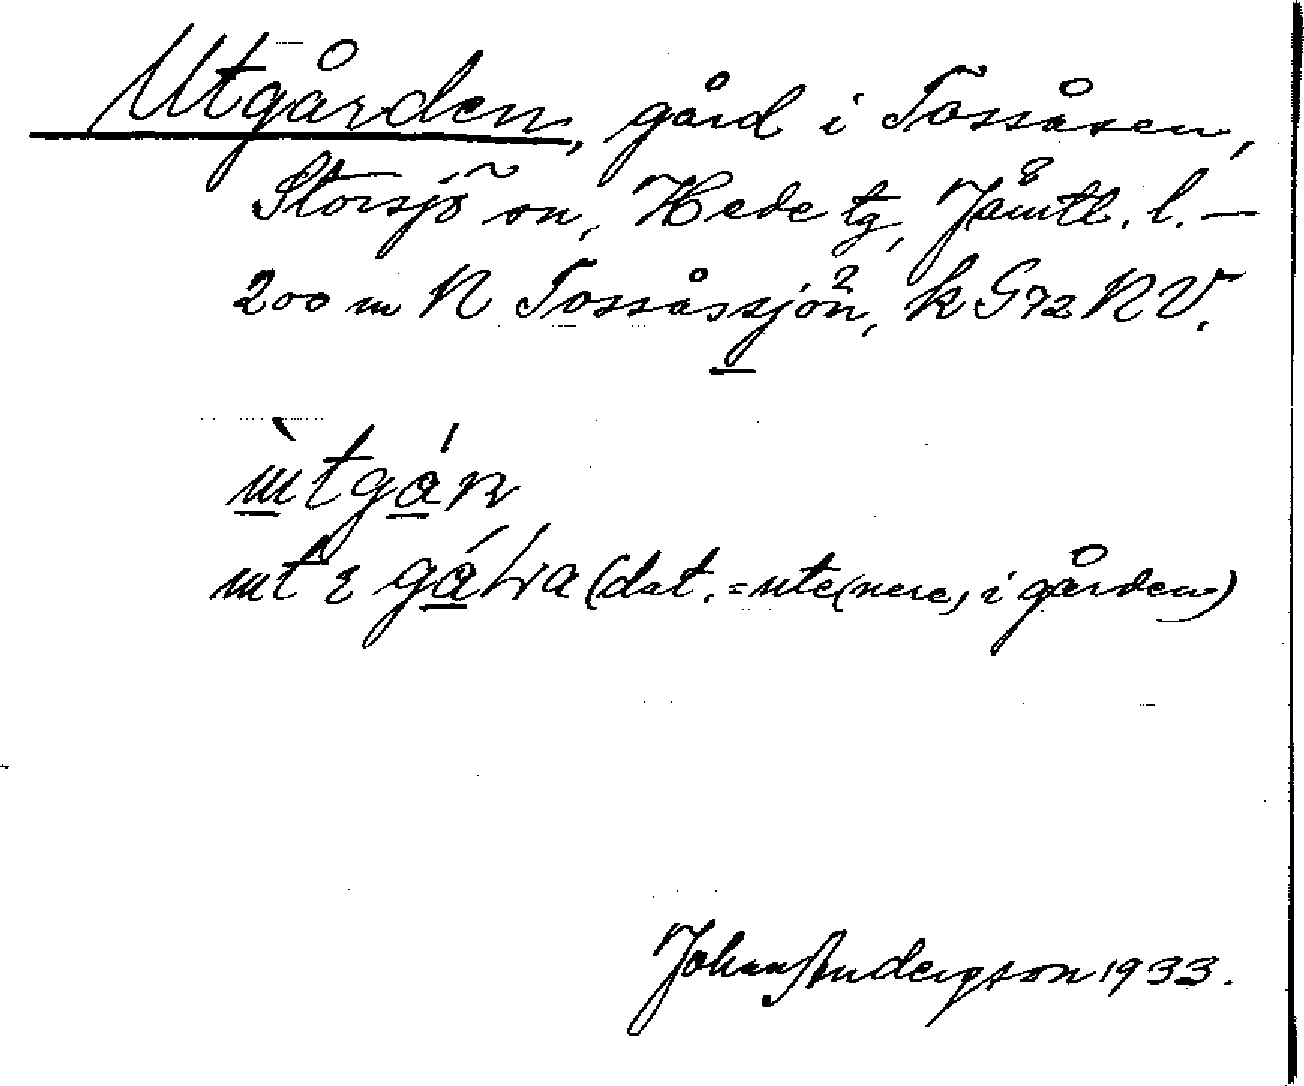 Utgården, gård i Tossåsen,
Storsjö sn, Hede tg, Jämtl. l. —
200 m N Tossåssjön, k G 72 NV.
(dat. = ute(nere) i gården)
Johan Anderson 1933.